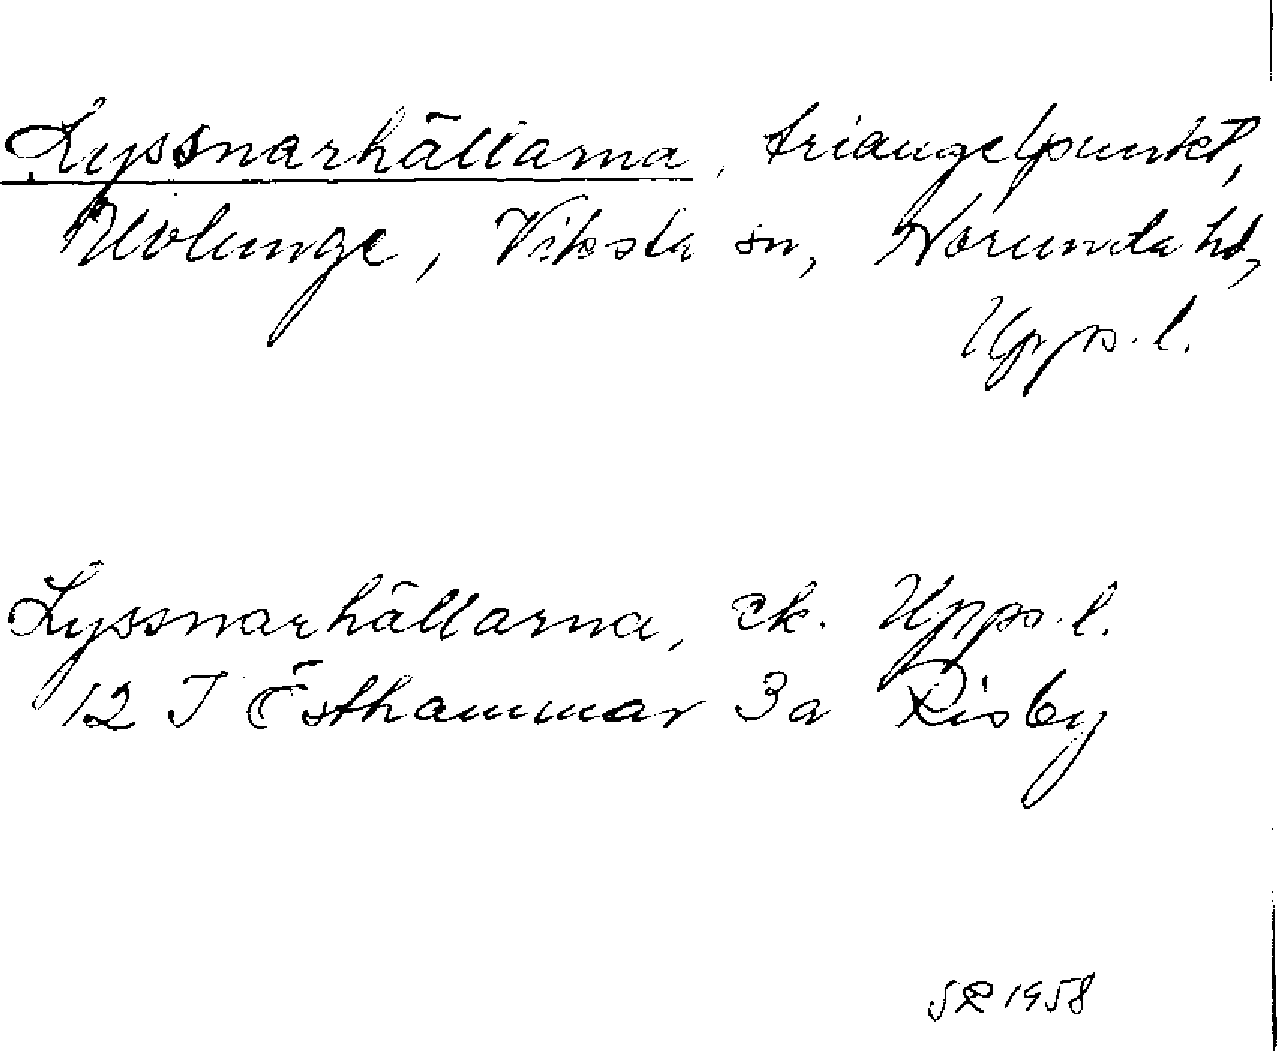 Lyssnarhällarna, triangelpunkt,
Ulvlunge, Viksta sn, Norunda hd,
Upps. l.
Lyssnarhällarna, ek. Upps. l.
12 I Östhammar 3a Risby
SR 1958